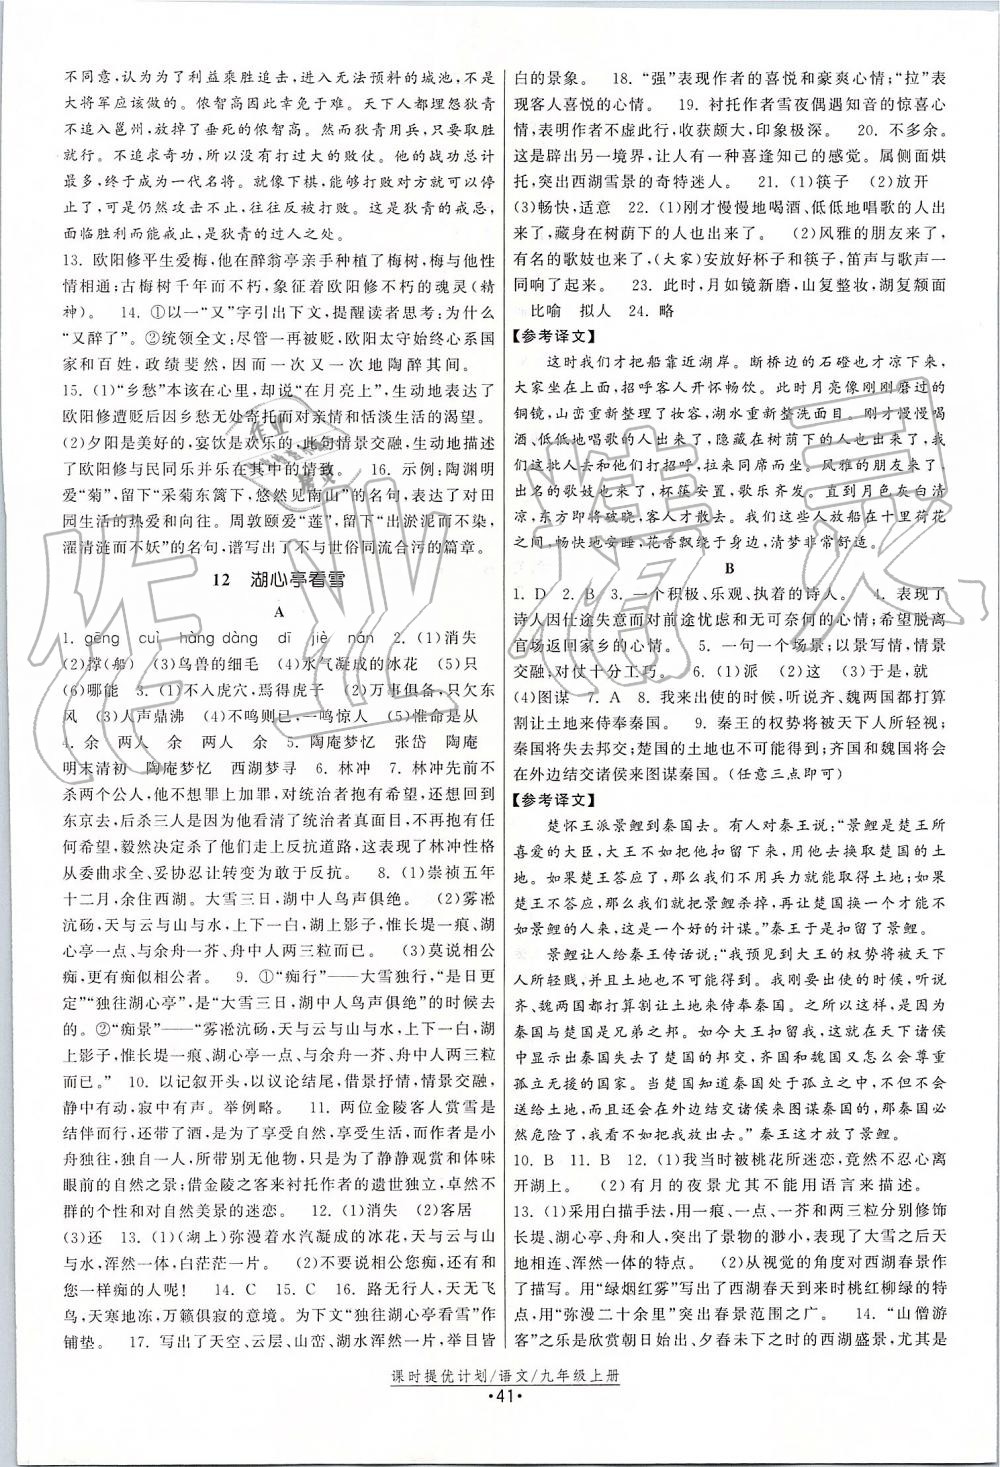 不同意,认为为了利益乘胜追击,进入无法预料的城池,不是
大将军应该做的。侬智高因此幸免于难。天下人都埋怨狄青
不追入邕州,放掉了垂死的侬智高。然而狄青用兵,只要取胜
就行。不追求奇功,所以没有打过大的败仗。他的战功总计
最多,终于成为一代名将。就像下棋,能够打败对方就可以停
止了,可是仍然攻击不止,往往反被打败。这是狄青的戒忌,
面临胜利而能戒止,是狄青的过人之处。
13. 欧阳修平生爱梅,他在醉翁亭亲手种植了梅树,梅与他性
情相通;古梅树千年而不朽,象征着欧阳修不朽的魂灵(精
神)。 14. ①以一“又”字引出下文,提醒读者思考:为什么
“又醉了”。②统领全文;尽管一再贬官,欧阳太守始终心系国
家和百姓,政绩斐然,因而一次又一次地陶醉其间。
15. (1)“乡愁”本该在心里,却说“在月亮上”,生动地表达了
欧阳修遭贬后因乡愁无处寄托而对亲情和恬淡生活的渴望。
(2)夕阳是美好的,宴饮是欢乐的,此句情景交融,生动地描述
了欧阳修与民同乐并乐在其中的情致。 16. 示例:陶渊明
爱“菊”,留下“采菊东篱下,悠然见南山”的名句,表达了对田
园生活的热爱和向往。周敦颐爱“莲”,留下“出淤泥而不染,
濯清涟而不妖”的名句,谱写出了不与世俗同流合污的篇章。
12 湖心亭看雪
A
1. gēng cuì hàng dàng dī jiè nán 2. (1)消失
(2)撑(船) (3)鸟兽的细毛 (4)水气凝成的冰花 (5)只
(6)哪能 3. (1)不入虎穴,焉得虎子 (2)万事俱备,只欠东
风 (3)人声鼎沸 (4)不鸣则已,一鸣惊人 (5)惟命是从
4. 余 两人 余 两人 余 5. 陶庵梦忆 张岱 陶庵
明末清初 陶庵梦忆 西湖梦寻 6. 林冲 7. 林冲先前不
杀两个公人,他不想罪上加罪,对统治者抱有希望,还想回到
东京去,后杀三人是因为他看清了统治者真面目,不再抱有任
何希望,毅然决定杀了他们走上反抗道路,这表现了林冲性格
从委曲求全、妥协忍让转变为敢于反抗。 8. (1)崇祯五年
十二月,余住西湖。大雪三日,湖中人鸟声俱绝。 (2)雾凇
沆砀,天与云与山与水,上下一白,湖上影子,惟长堤一痕、湖
心亭一点、与余舟一芥、舟中人两三粒而已。 (3)莫说相公
痴,更有痴似相公者。 9. ①“痴行”——大雪独行,“是日更
定”“独往湖心亭”,是“大雪三日,湖中人鸟声俱绝”的时候去
的。②“痴景”——“雾凇沆砀,天与云与山与水,上下一白,湖
上影子,惟长堤一痕、湖心亭一点、与余舟一芥、舟中人两三粒
而已。” 10. 以记叙开头,以议论结尾,借景抒情,情景交融,
静中有动,寂中有声。举例略。 11. 两位金陵客人赏雪是
结伴而行,还带了酒,是为了享受自然,享受生活,而作者是小
舟独往,只身一人,所带甚少,只是为了静静观赏和体味
眼前的自然之景;借金陵之客来衬托作者的遗世独立、卓然不
群的个性和对自然美景的迷恋。 12. (1)消失 (2)客居
(3)还 13. (1)(湖上)弥漫着水汽凝成的冰花,天与云与山
与水,浑然一体,白茫茫一片。 (2)不要说相公您痴,还有和
您一样痴的人呢! 14. C 15. C 16. 路无行人,天无飞
鸟,天寒地冻,万籁俱寂的意境。为下文“独往湖心亭看雪”作
铺垫。 17. 写出了天空、云层、山峦、湖水浑然一片,举目皆
白的景象。 18. “强”表现作者的喜悦和豪爽心情;“拉”表
现客人喜悦的心情。 19. 衬托作者雪夜偶遇知音的惊喜心
情,表明作者不虚此行,收获颇大,印象极深。 20. 不多余。
这是辟出另一境界,让人有一种喜逢知己的感觉。属侧面烘
托,突出西湖雪景的奇特迷人。 21. (1)筷子 (2)放开
(3)畅快,适意 22. (1)刚才慢慢地喝酒、低低地唱歌的人出
来了,藏身在树荫下的人也出来了。 (2)风雅的朋友来了,
有名的歌妓也来了,(大家)安放好杯子和筷子,笛声与歌声一
同响了起来。 23. 此时,月如镜新磨,山复整妆,湖复颒面
比喻 拟人 24. 略
【参考译文】
这时我们才把船靠近湖岸。断桥边的石磴也才凉下来,
大家坐在上面,招呼客人开怀畅饮。此时月亮像刚刚磨过的
铜镜,山峦重新整理了妆容,湖水重新整洗面目。刚才慢慢喝
酒、低低地唱歌的人出来了,隐藏在树荫下的人也出来了,我
们去和他们打招呼,拉来同席而坐。风雅的朋友来了,
出名的歌妓也来了,杯筷安置,歌乐齐发。直到月色灰白清
凉,东方即将破晓,客人才散去。我们这些人放船在十里荷花
之间,畅快地安睡,花香飘绕于身边,清梦非常舒适。
B
1. D 2. B 3. 一个积极、乐观、执着的诗人。 4. 表现了
诗人因仕途失意而对前途忧虑和无可奈何的心情;希望脱离
官场返回家乡的心情。 5. 一句一个场景;以景写情,情景
交融,对仗十分工巧。 6. (1)派 (2)这 (3)于是,就
(4)图谋 7. A 8. 我来出使的时候,听说齐、魏两国都打算
割让土地来侍奉秦国。 9. 秦王的权势将被天下人所轻视;
秦国将失去邦交;楚国的土地也不可能得到;齐国和魏国将会
在外边结交诸侯来图谋秦国。(任意三点即可)
【参考译文】
楚怀王派景鲤到秦国去。有人对秦王说:“景鲤是楚王所
喜爱的大臣,大王不如把他扣留下来,用他去换取楚国的土
地。如果楚王答应了,那么我们不用兵就能取得土地;如果
楚王不答应,那么我们就把景鲤杀掉,再让楚国换一个才能不
如景鲤的人来,这是一个好的计谋。”秦王于是扣留了景鲤。
景鲤让人给秦王传话说:“我预见到大王的权势将被天下
人所轻视,并且土地也不可能得到。我刚要出使的时候,听说
齐、魏两国都打算割让土地来侍奉秦国。之所以这样,是因为
秦国与楚国是兄弟之邦。如今大王扣留我,这是在天下诸侯
中显示出秦国失去了楚国的邦交,齐国和魏国又怎么会尊重
孤立无援的国家。当楚国知道秦国处于孤立之中,不但不会
送给土地,而且会在外边结交诸侯来图谋秦国的,那秦国必
然危险了,我看不如把我放出去。”秦王这才放了景鲤。
10. B 11. B 12. (1)我当时被桃花所迷恋,竟然不忍心离
开湖上。 (2)有月的夜景尤其不能用语言来描述。
13. (1)采用白描手法,用一痕、一点、一芥和两三粒分别修饰
长堤、湖心亭、舟和人,表现了景物的渺小,表现了大雪之后天
地相连、浑然一体的特点。 (2)从视觉的角度对西湖春景作
了描写。用“绿烟红雾”写出了西湖春天到来时桃红柳绿的特
点,用“弥漫二十余里”突出春景范围之广。 14. “山僧游
客”之乐是欣赏朝日始出、夕舂未下之时的西湖盛景,尤其是
课时提优计划/语文/九年级上册
·41·